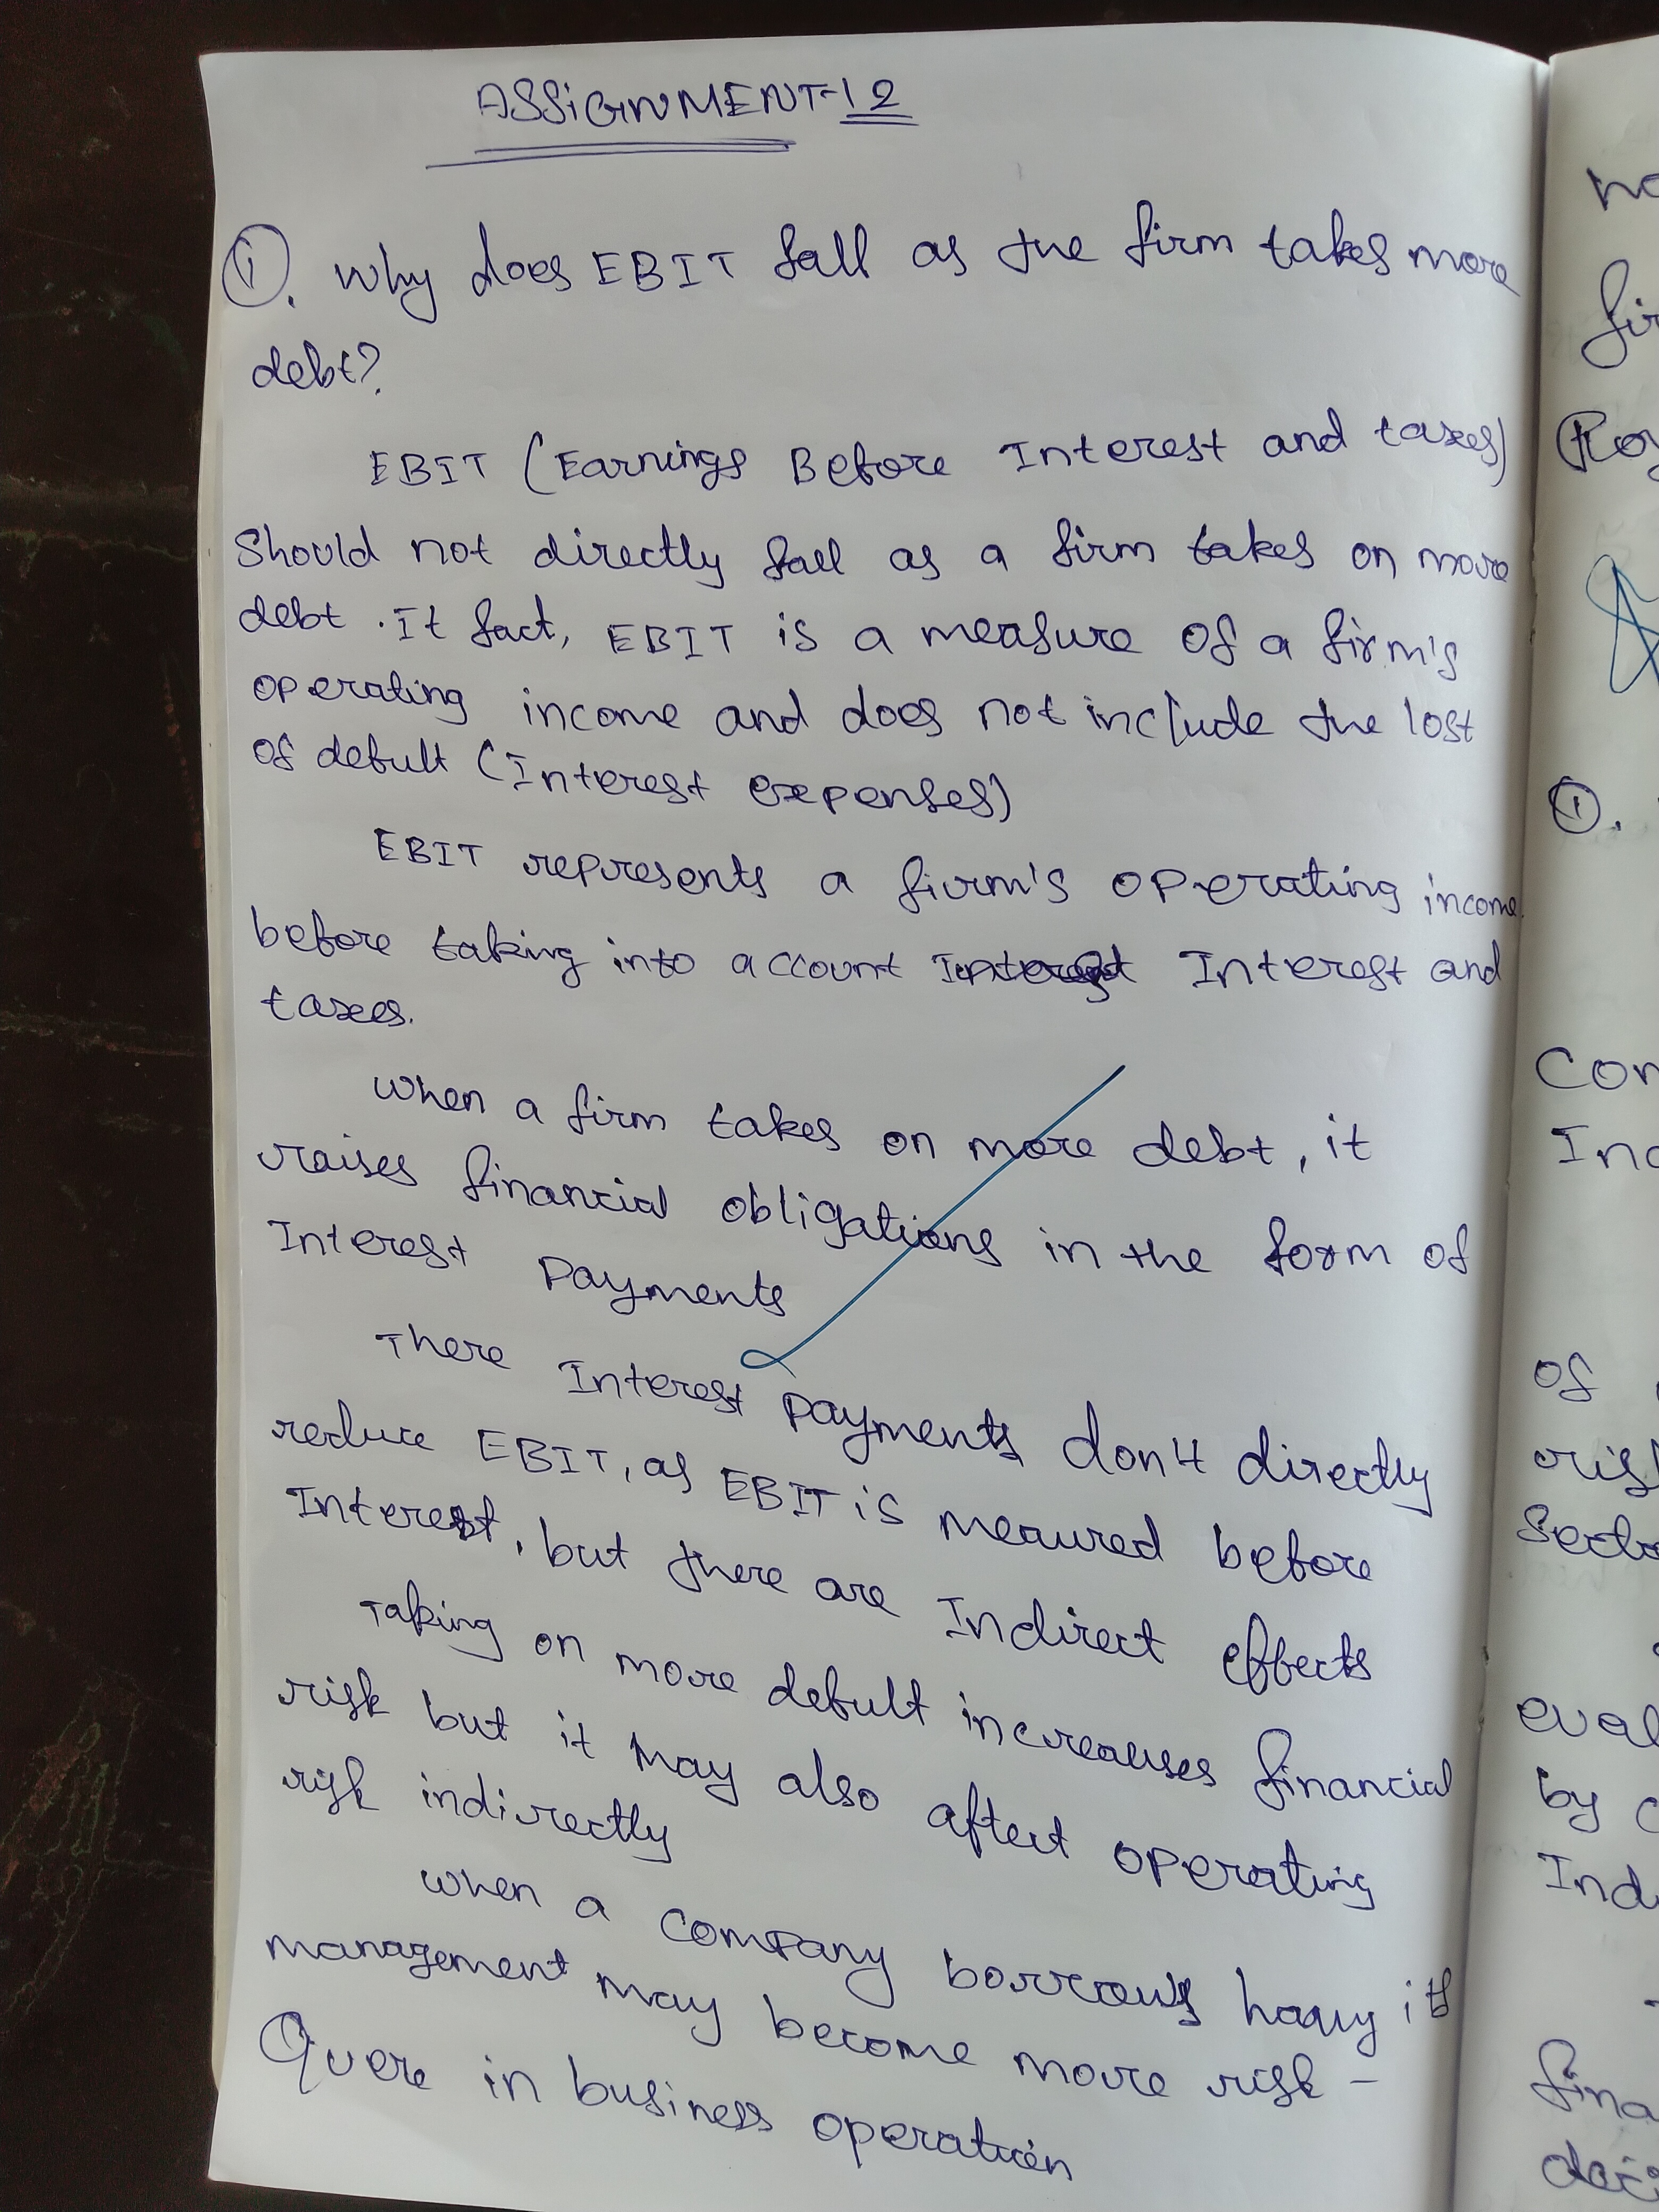 ASSIGNMENT-12
①. Why does EBIT fall as the firm takes more
debt?
EBIT (Earnings Before Interest and taxes)
Should not directly fall as a firm takes on more
debt. It fact, EBIT is a measure of a firm's
operating income and does not include the lost
of debult (Interest expenses)
EBIT represents a firm's operating income
before taking into account Interest and
taxes.
When a firm takes on more debt, it
raises financial obligations in the form of
Interest Payments
There Interest payments don't directly
reduce EBIT, as EBIT is meaured before
Interest, but there are Indirect effects
Taking on more debult increases financial
risk but it may also affect operating
risk indirectly
When a company borrows
management may become more risk-
in business operation
no
①.
Con
Ind
of
risk
by
Ind
fina